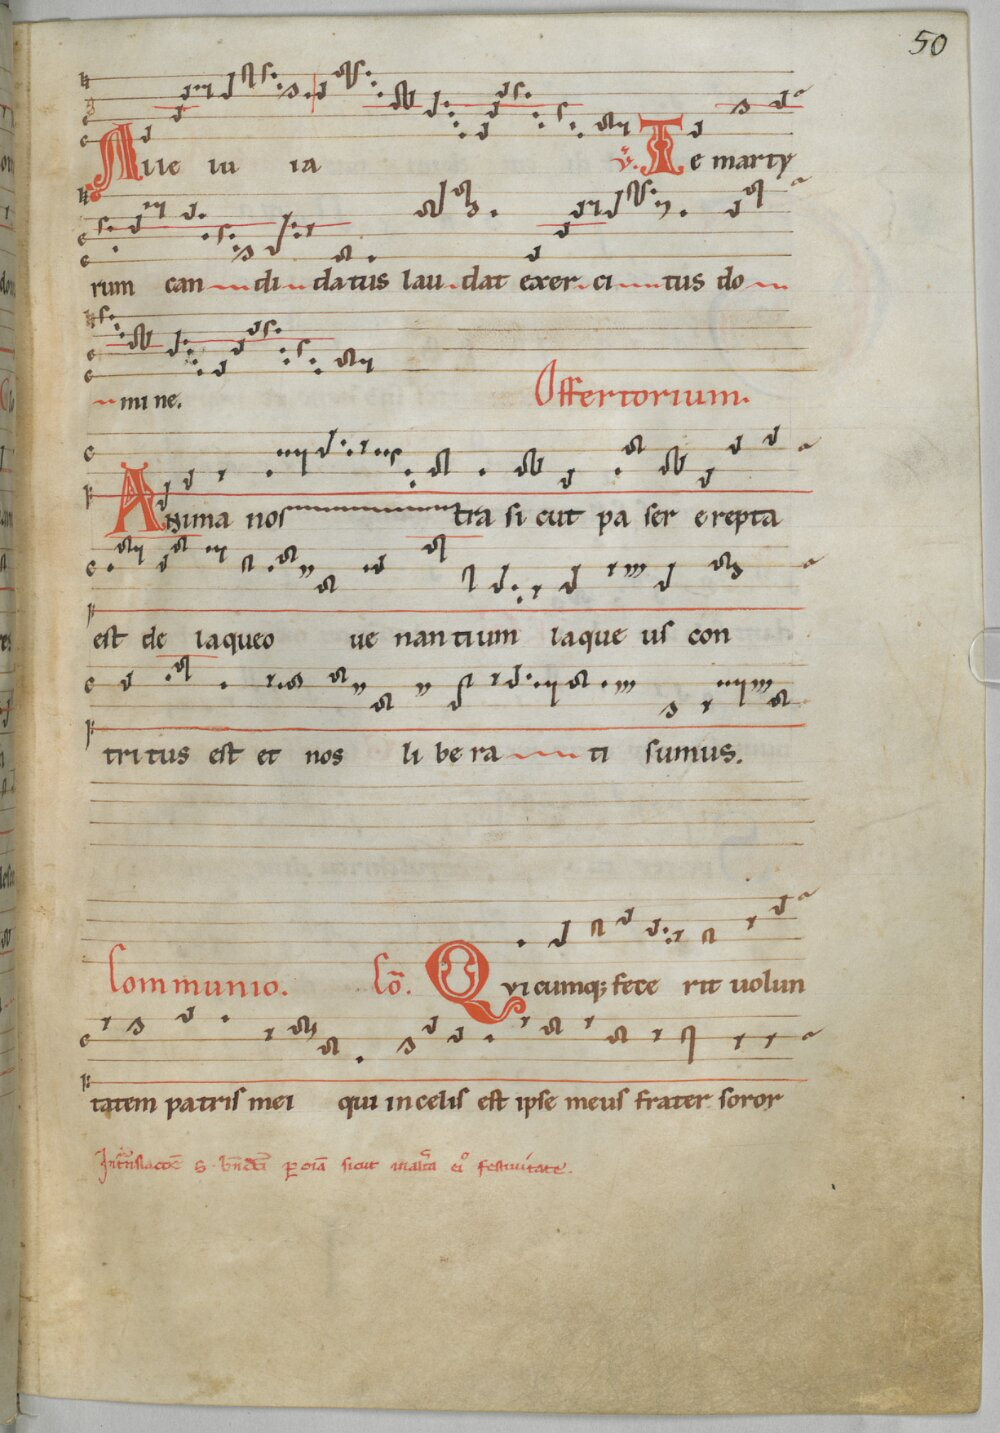 50
Alle lu ia ℣. Te marty
rum can di datus lau dat exer ci tus do
mi ne.
Offertorium.
Anima nos tra si cut pa ser erepta
est de laqueo ue nantium laque us con
tritus est et nos li be ra ti sumus.
Communio. Cō. Qui cumq; fece rit uolun
tatem patris mei qui in celis est ipse meus frater soror
S. sicut festiuitate.